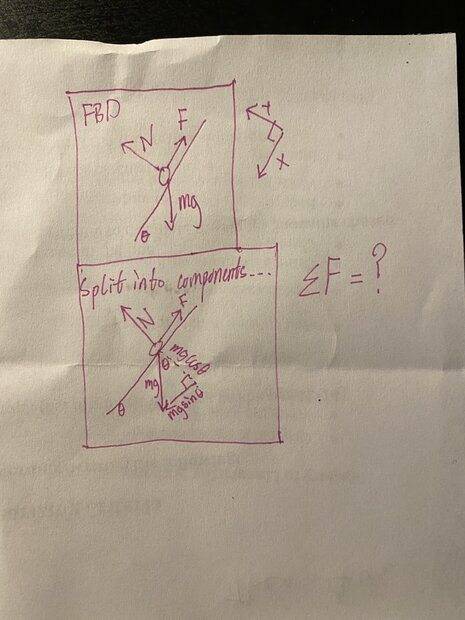 FBD
N
F
Y
X
mg
θ
Split into components...
ΣF = ?
F
N
mgcosθ
θ
mg
mgsinθ
θ